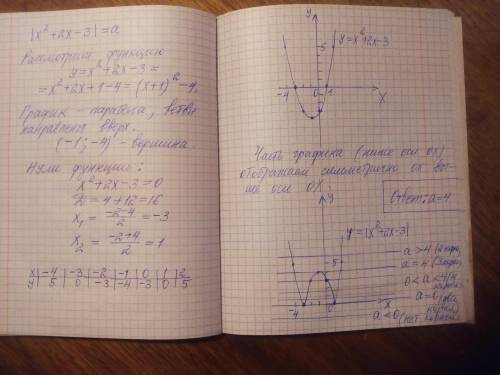 |x²+2x-3|=a
Рассмотрим функцию
y=x²+2x-3=
=x²+2x+1-4=(x+1)²-4,
График - парабола, ветви
направлены вверх.
(-1; -4) - вершина.
Нули функции:
x²+2x-3=0
D=4+12=16
x₁=(-2-4)/2=-3
x₂=(-2+4)/2=1
x | -4 | -3 | -2 | -1 | 0 | 1 | 2
y | 5 | 0 | -3 | -4 | -3 | 0 | 5
y
5
y=x²+2x-3
-4
1
x
Часть графика (ниже оси ox)
отображаем симметрично ox
ше оси OX.
Ответ: a=4
y
y=|x²+2x-3|
5
-4
0
x
a>4 (2
a=4 (3
0<a<4 (4
a=0 (два
a<0 (нет корней)